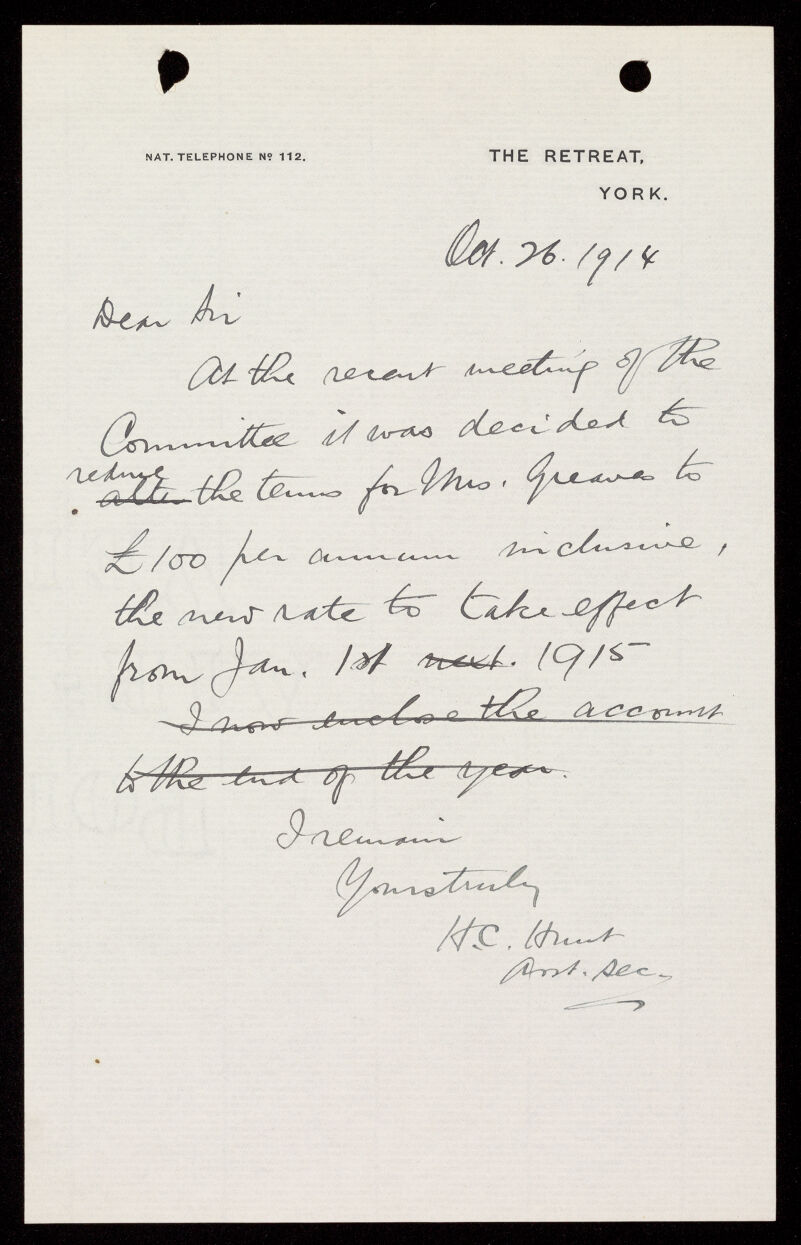 NAT. TELEPHONE Nº 112.
THE RETREAT,
YORK.
Oct. 26. 1914
Dear Sir
At the recent meeting of the
Committee it was decided to
reduce
alter the terms for Mrs. Greaves to
£100 per annum inclusive,
the new rate to take effect
from Jan. 1st next. 1915
I now enclose the account
to the end of the year.
I remain
Yours truly
H.C. Hunt
Asst. Sec.